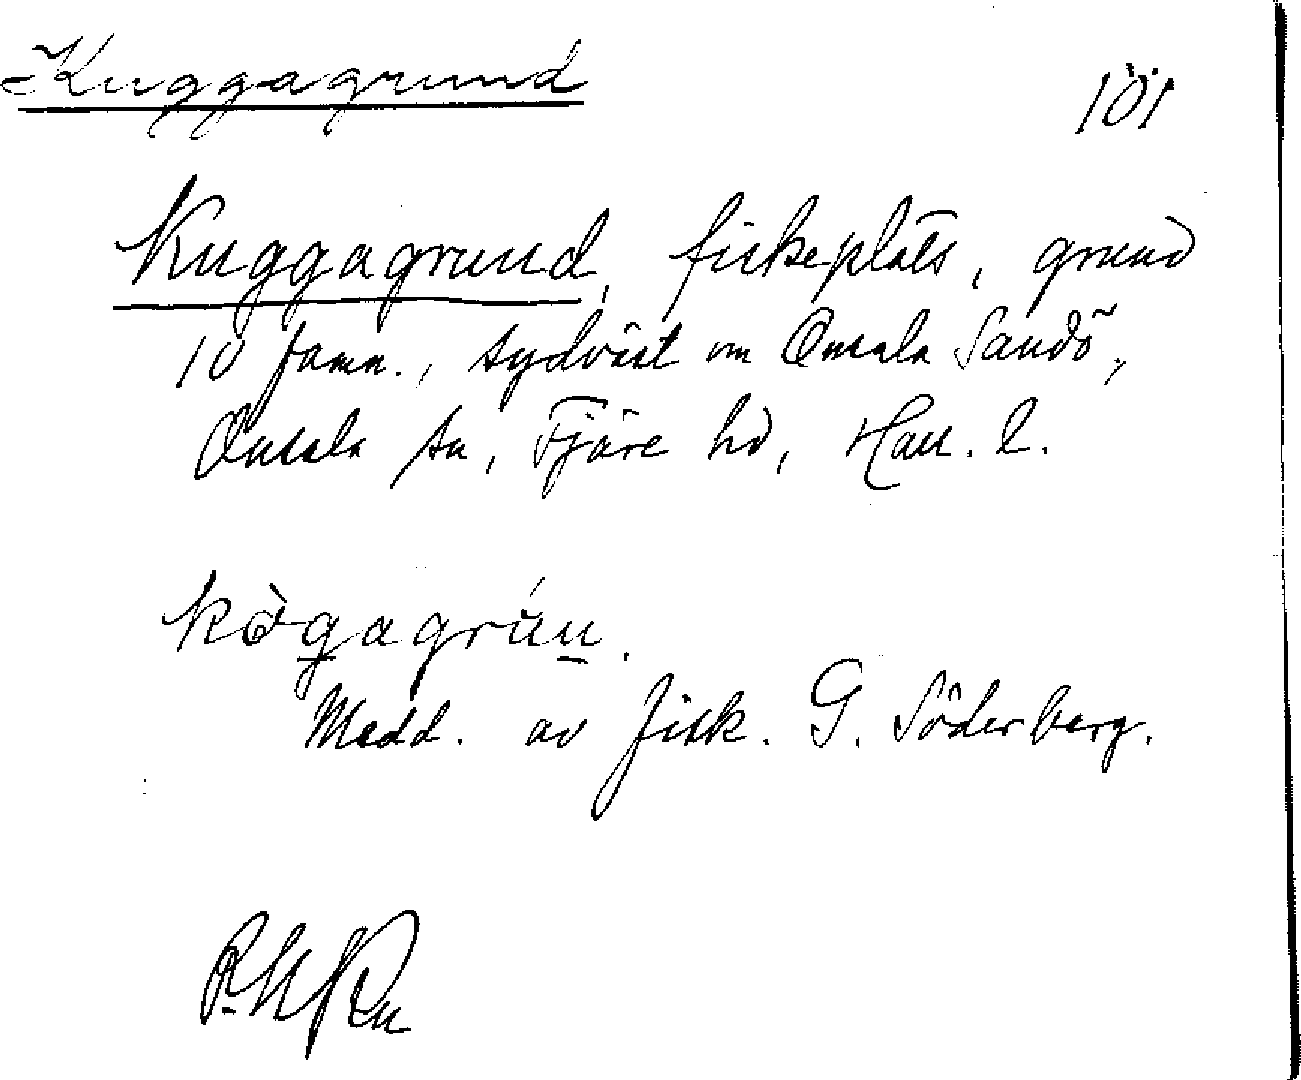 Kuggagrund
101
Kuggagrund, fiskeplats, grund
10 famn., sydväst om Onsala Sandö,
Onsala sn, Fjäre hd, Hall. l.
kògagrún.
Medd. av fisk. G. Söderberg.